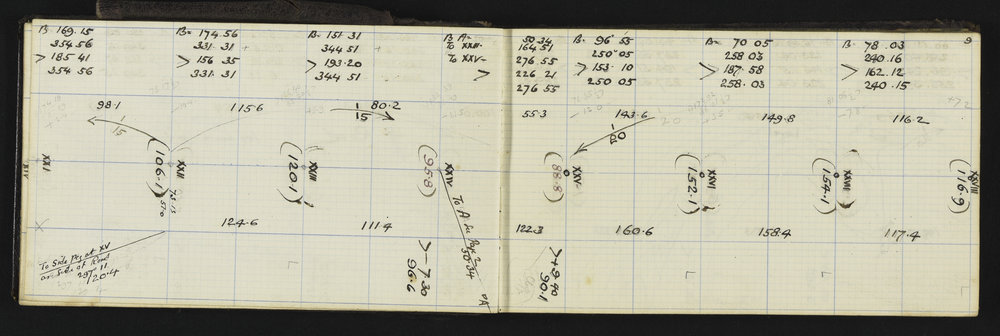 B 169.15
354.56
> 185 41
354 56
B= 174.56
331.31
> 156 35
331.31
B= 151.31
344 51
> 193.20
344 51
B A=
To XXIII-
To XXV-
>
50.34
164 51
276 55
226 21
276 55
B= 96° 55
250° 05
> 153.10
250 05
B= 70 05
258 03
> 187.58
258.03
B. 78.03
240.16
> 162.12
240.15
9
98.1
1/15
115.6
1/15
80.2
55.3
143.6
1/10
149.8
116.2
+72
XXI
XIV
(106.1)
XXII
(120.1)
XXIII
(95.8)
XXIV
(88.8)
XXV
(152.1)
XXVI
(154.1)
XXVII
(116.9)
XXVIII
124.6
111.4
To A See Page 2
50.34
122.3
160.6
158.4
117.4
To Side Peg at XV
on Side of Road
297° 11
/20.4
>-7.30
96.6
"A"
>+8.40
90.1